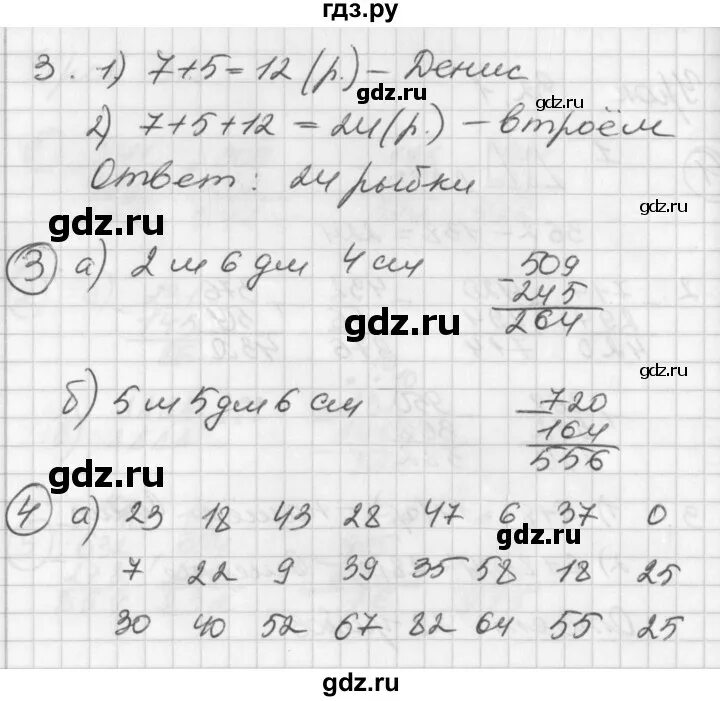 гдз.ру
3. 1) 7+5=12 (р.) – Денис
gdz.ru
2) 7+5+12 = 24 (р.) – втроём
Ответ: 24 рыбки
gdz.ru
gdz.ru
3 а) 2 м 6 дм 4 см
509
- 245
264
gdz.ru
б) 5 м 5 дм 6 см
gdz.ru
720
- 164
556
gdz.ru
4 а) 23 18 43 28 47 6 37 0
gdz.ru
7 22 9 39 35 58 18 25
30 40 52 67 82 64 55 25
gdz.ru